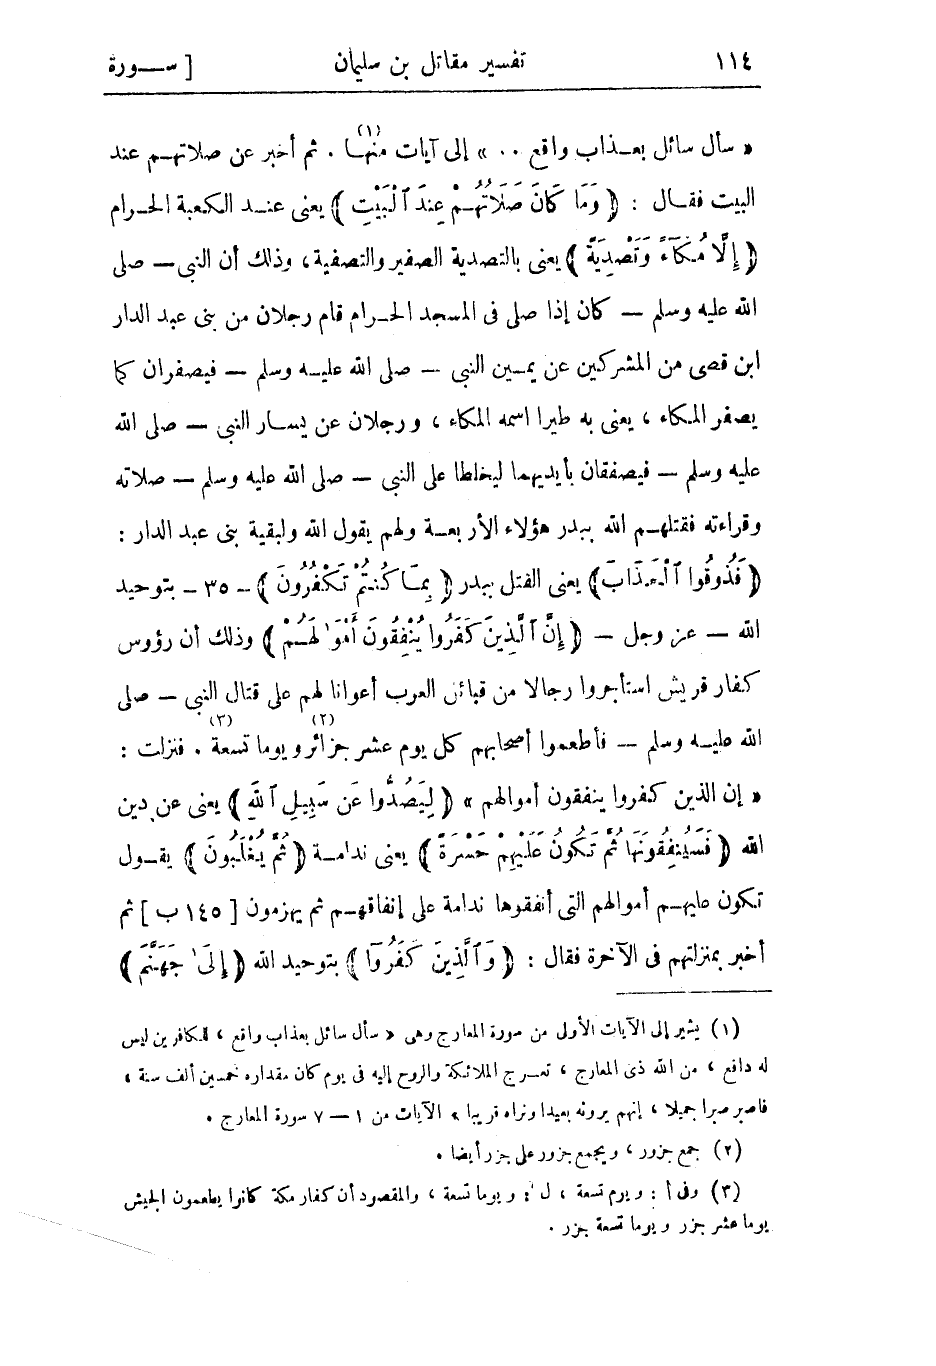 ١١٤ تفسير مقاتل بن سليمان [ ســورة
« سأل سائل بعـذاب واقع .. » إلى آيات منهـا (١) . ثم أخبر عن صلاتهـم عند
البيت فقـال : ﴿ وَمَا كَانَ صَلَاتُهُـمْ عِندَ ٱلْبَيْتِ ﴾ يعنى عنـد الكعبة الحـرام
﴿ إِلَّا مُكَآءً وَتَصْدِيَةً ﴾ يعنى بالتصدية الصفير والتصفية ، وذلك أن النبى — صلى
الله عليه وسلم — كان إذا صلى فى المسجد الحـرام قام رجلان من بنى عبد الدار
ابن قصى من المشركين عن يمـين النبى — صلى الله عليـه وسلم — فيصفران كما
يصفر المـكاء ، يعنى به طيرا اسمه المكاء ، ورجلان عن يسـار النبى — صلى الله
عليه وسلم — فيصفقان بأيديهما ليخلطا على النبى — صلى الله عليه وسلم — صلاته
وقراءته فقتلهـم الله ببدر هؤلاء الأربعـة ولهم يقول الله ولبقية بنى عبد الدار :
﴿ فَذُوقُوا ٱلْعَذَابَ ﴾ يعنى القتل ببدر ﴿ بِمَا كُنتُمْ تَكْفُرُونَ ﴾ - ٣٥ - بتوحيد
الله — عز وجل — ﴿ إِنَّ ٱلَّذِينَ كَفَرُوا يُنْفِقُونَ أَمْوَٰلَهُـمْ ﴾ وذلك أن رؤوس
كفار قريش استأجروا رجالا من قبائل العرب أعوانا لهم على قتال النبى — صلى
الله عليـه وسلم — فأطعموا أصحابهم كل يوم عشر جزائر (٢) ويوما تسعة (٣) . فنزلت :
« إن الذين كفروا ينفقون أموالهم » ﴿ لِيَصُدُّوا عَن سَبِيلِ ٱللَّهِ ﴾ يعنى عن دين
الله ﴿ فَسَيُنفِقُونَهَا ثُمَّ تَكُونُ عَلَيْهِمْ حَسْرَةً ﴾ يعنى ندامـة ﴿ ثُمَّ يُغْلَبُونَ ﴾ يقـول
تكون عليهـم أموالهم التى أنفقوها ندامة على إنفاقهـم ثم يهزمون [ ١٤٥ ب ] ثم
أخبر بمنزلتهم فى الآخرة فقال : ﴿ وَٱلَّذِينَ كَفَرُوٓا ﴾ بتوحيد الله ﴿ إِلَىٰ جَهَنَّمَ ﴾
(١) يشير إلى الآيات الأولى من سورة المعارج وهى « سأل سائل بعذاب واقع ، للكافرين ليس
له دافع ، من الله ذى المعارج ، تعـرج الملائكة والروح إليه فى يوم كان مقداره خمسين ألف سنة ،
فاصبر صبرا جميلا ، إنهم يرونه بعيدا ونراه قريبا » الآيات من ١ — ٧ سورة المعارج .
(٢) جمع جزور ، ويجمع جزور على جزر أيضا .
(٣) وفى أ : ويوم تسعة ، ل : ويوما تسعة ، والمقصود أن كفار مكة كانوا يطعمون الجيش
يوما عشر جزر ويوما تسعة جزر .